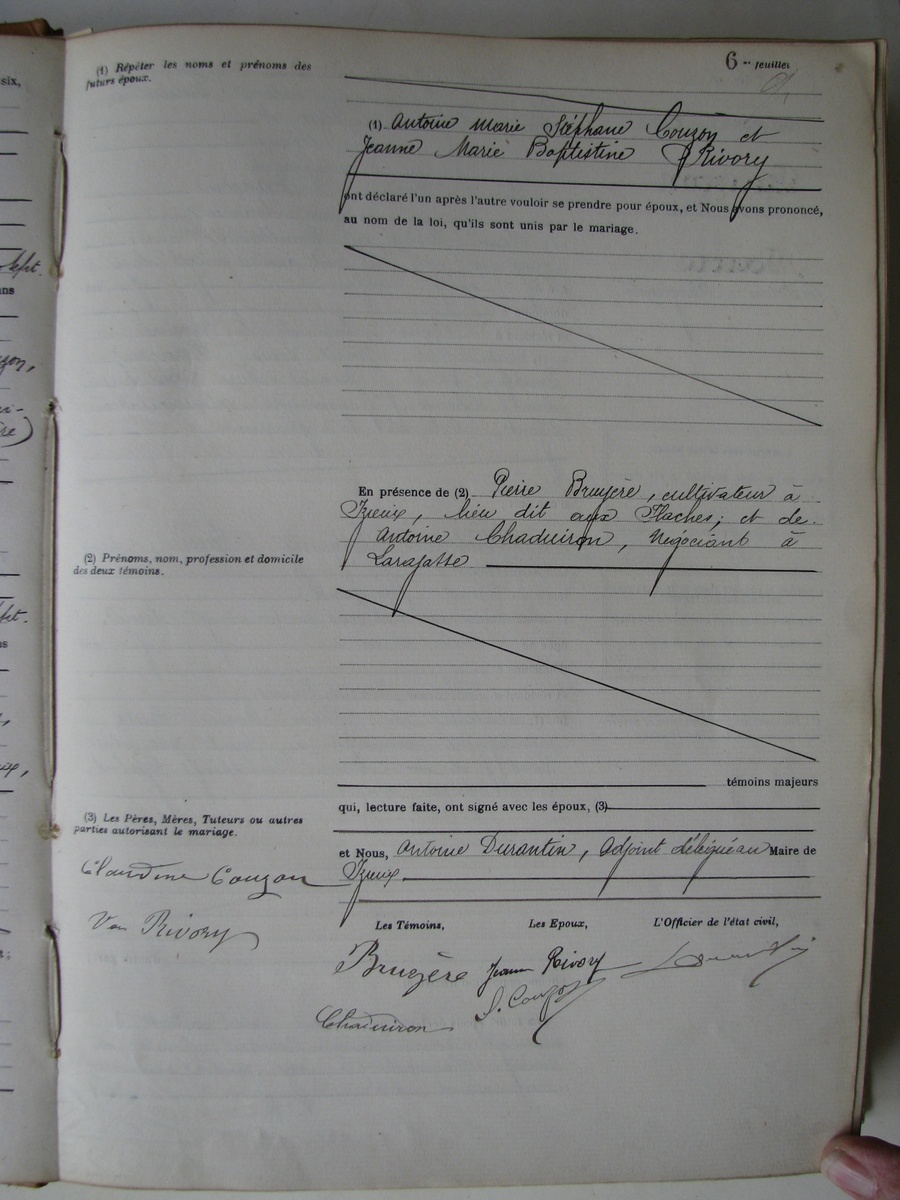 six,
6me feuillet
(1) Répéter les noms et prénoms des
futurs époux.
(1) Antoine Marie Stéphane Couzon et
Jeanne Marie Baptistine Rivory
ont déclaré l'un après l'autre vouloir se prendre pour époux, et Nous avons prononcé,
au nom de la loi, qu'ils sont unis par le mariage.
En présence de (2) Pierre Bruyère, cultivateur à
Izieux, lieu dit aux Flaches; et de
Antoine Chaduiron, Négociant à
Larajasse
(2) Prénoms, nom, profession et domicile
des deux témoins.
témoins majeurs
qui, lecture faite, ont signé avec les époux, (3)
(3) Les Pères, Mères, Tuteurs ou autres
parties autorisant le mariage.
et Nous, Antoine Durantin, Adjoint délégué au Maire de
Izieux
Claudine Couzon
Ve Rivory
Les Témoins,
Les Epoux,
L'Officier de l'état civil,
Bruyère
Jeanne Rivory
S. Couzon
Chaduiron
Durantin